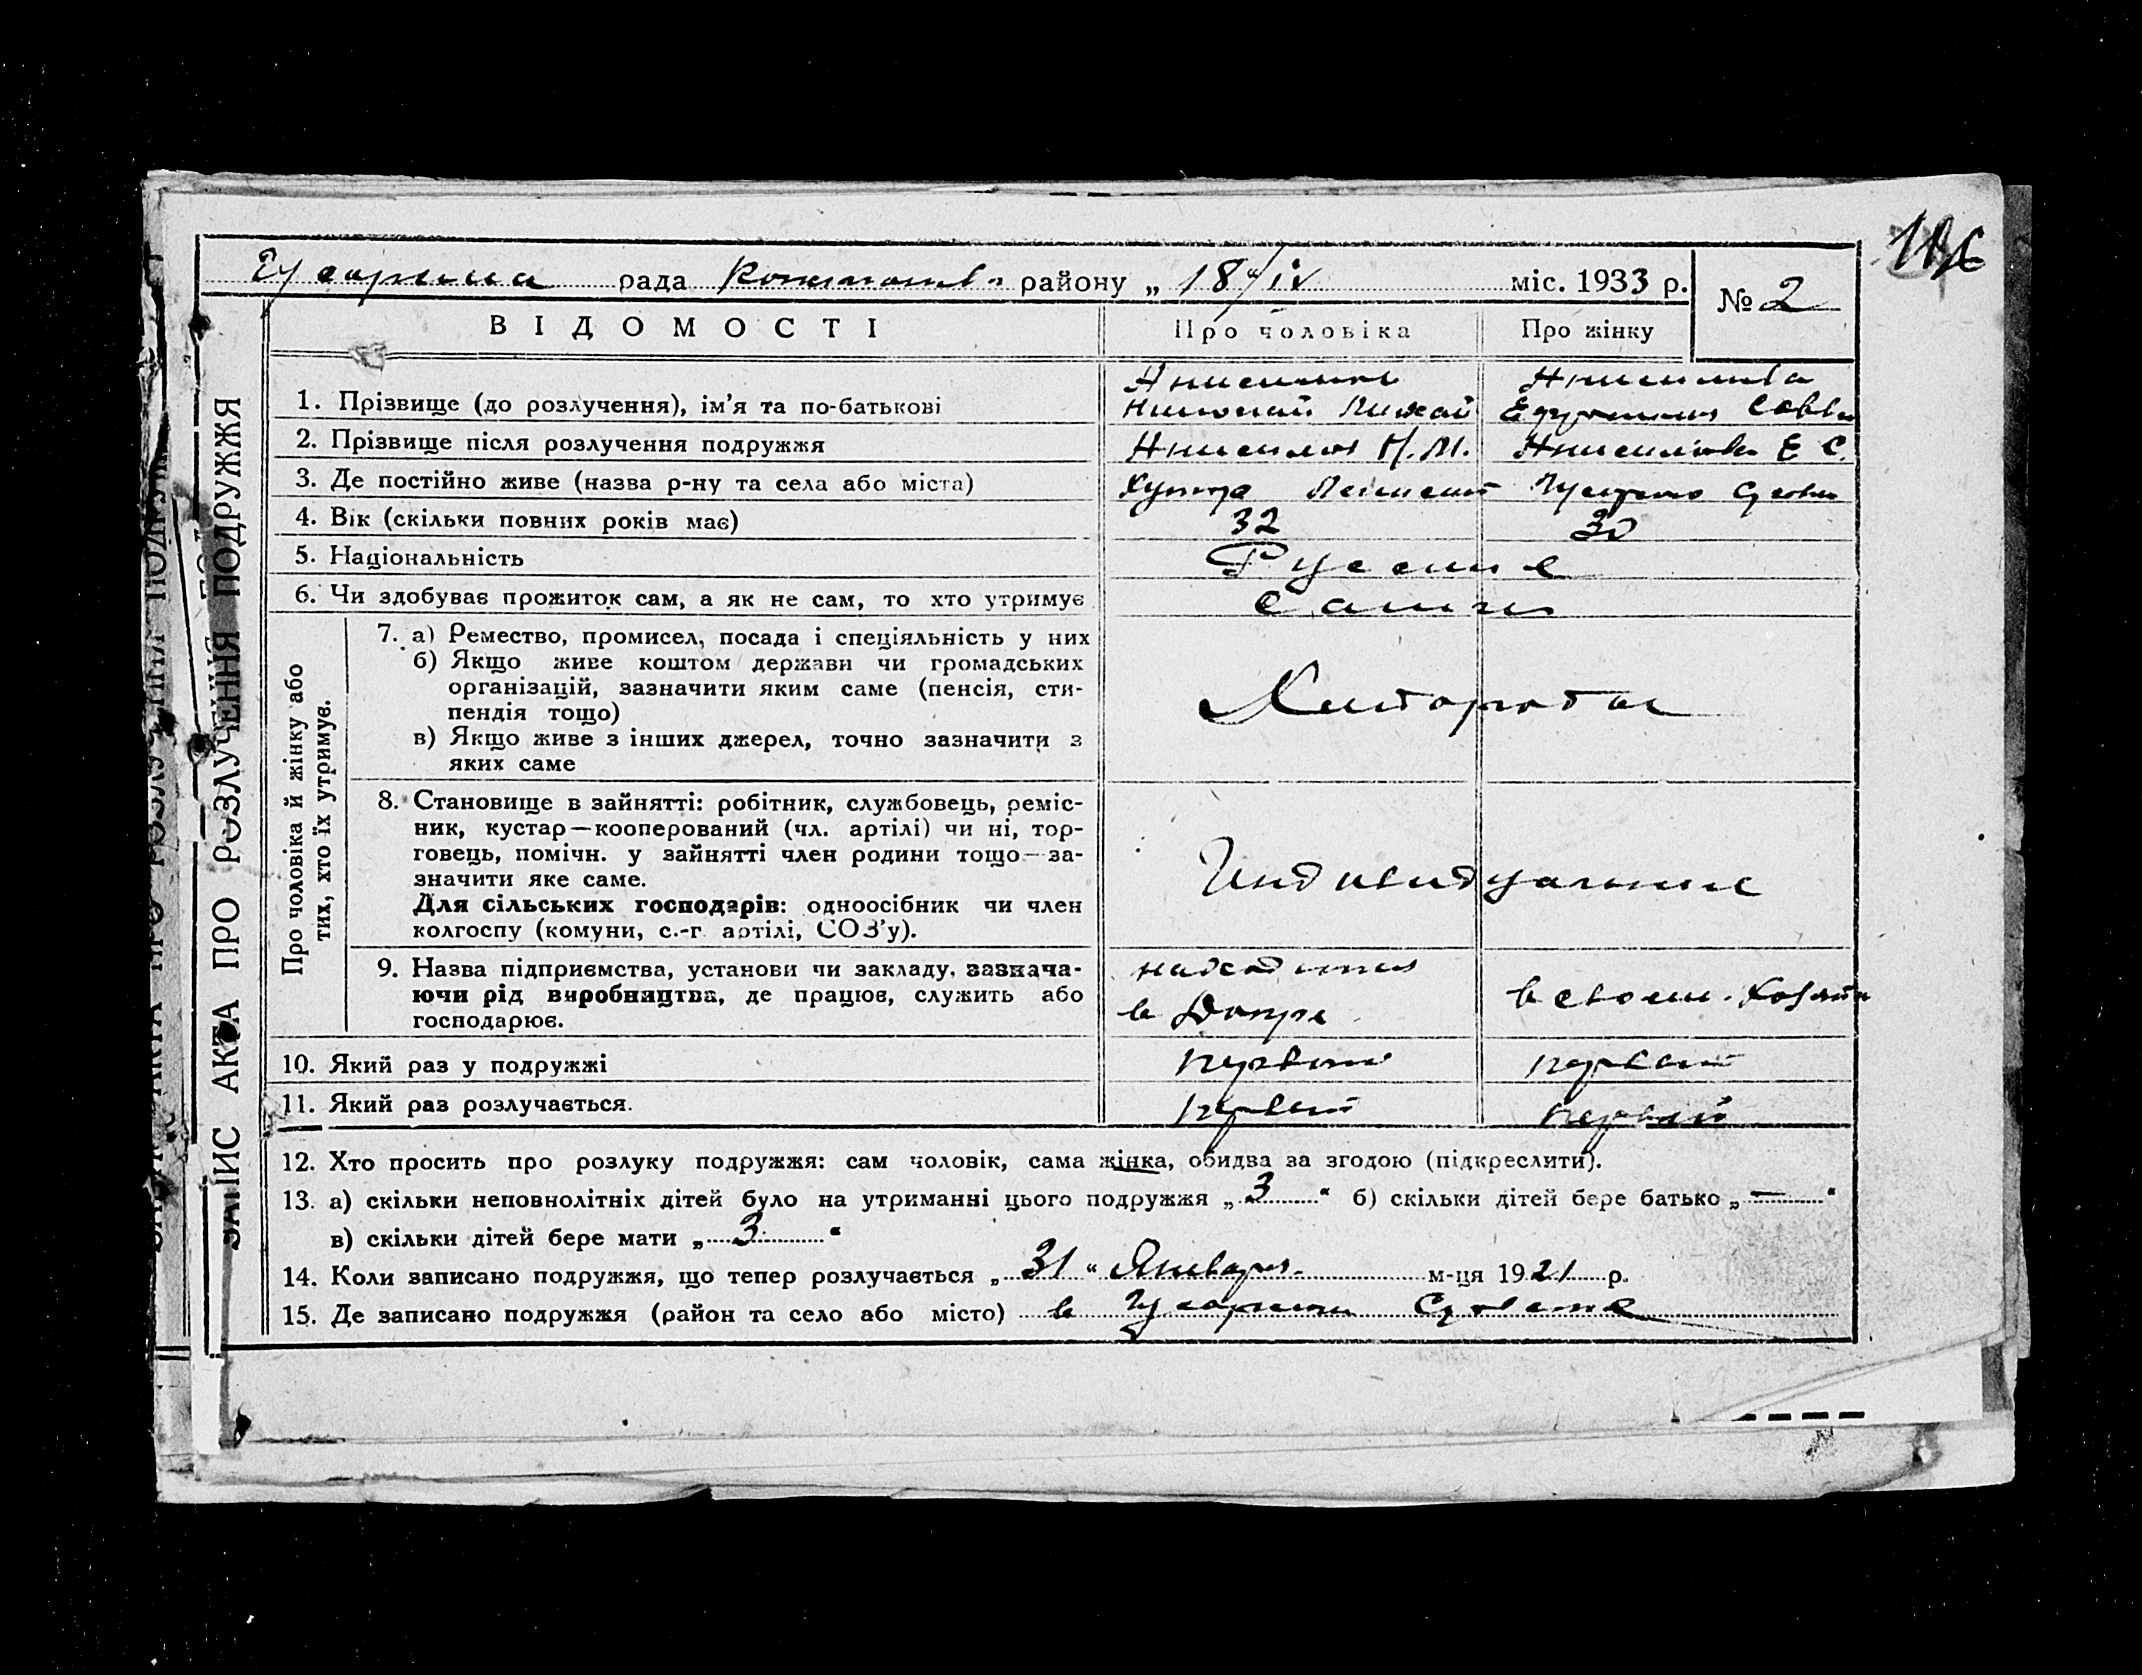 116
Гусарина рада района „ 18 "/IV міс. 1933 р.
№ 2
ВІДОМОСТІ Про чоловіка Про жінку
Анисимов Анисимова
1. Прізвище (до розлучення), ім'я та по-батькові Николай Михай Савви
2. Прізвище після розлучення подружжя Анисимов Н. М. Анисимова Е. С.
3. Де постійно живе (назва р-ну та села або міста) Хутор
4. Вік (скільки повних років має) 32 30
5. Національність Русские
6. Чи здобуває прожиток сам, а як не сам, то хто утримує сами
Про чоловіка й жінку або
тих, хто їх утримує.
7. а) Ремество, промисел, посада і спеціяльність у них
б) Якщо живе коштом держави чи громадських
організацій, зазначити яким саме (пенсія, сти-
пендія тощо)
Хлебороби
в) Якщо живе з інших джерел, точно зазначити з
яких саме
8. Становище в зайнятті: робітник, службовець, реміс-
ник, кустар—кооперований (чл. артілі) чи ні, тор-
говець, помічн. у зайнятті член родини тощо—за-
значити яке саме.
Индивидуальние
Для сільських господарів: одноосібник чи член
колгоспу (комуни, с.-г. артілі, СОЗ'у).
9. Назва підприємства, установи чи закладу, зазнача-
ючи рід виробництва, де працює, служить або
господарює.
находится
в Допре
в своем Хозяй
10. Який раз у подружжі первый первый
11. Який раз розлучається. первый первый
12. Хто просить про розлуку подружжя: сам чоловік, сама жінка, обидва за згодою (підкреслити).
13. а) скільки неповнолітніх дітей було на утриманні цього подружжя „ 3 " б) скільки дітей бере батько „ — "
в) скільки дітей бере мати „ 3 "
14. Коли записано подружжя, що тепер розлучається „ 31 " Января м-ця 1921 р.
15. Де записано подружжя (район та село або місто) в
ЗАПИС АКТА ПРО РОЗЛУЧЕННЯ ПОДРУЖЖЯ